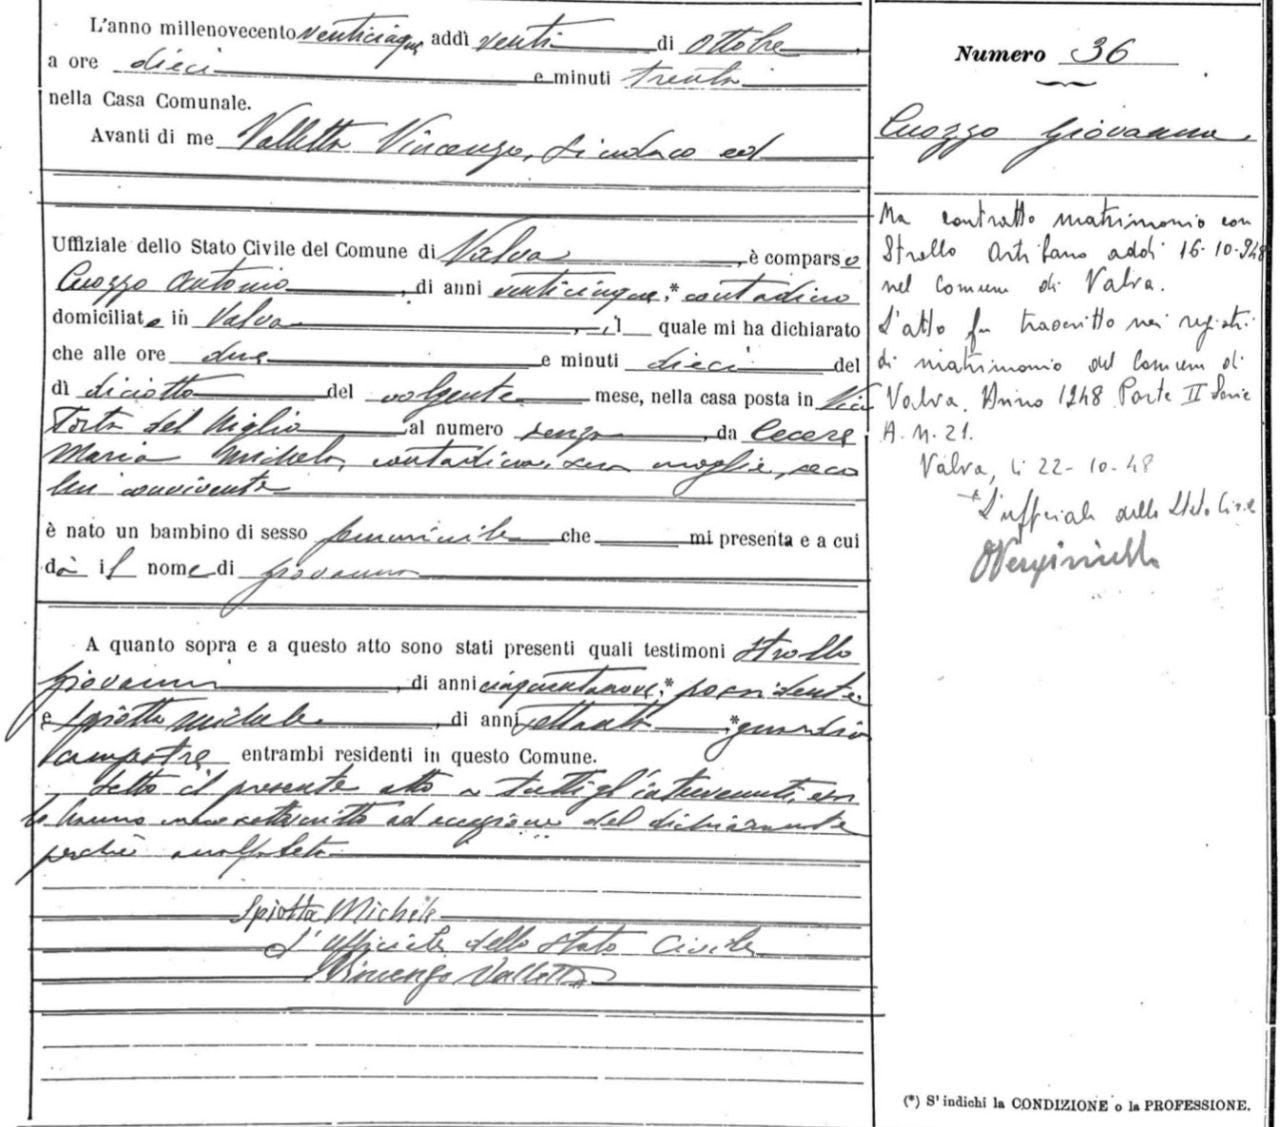 L'anno millenovecento venticinque, addì venti di Ottobre,
a ore dieci e minuti trenta,
nella Casa Comunale.
Avanti di me Valletta Vincenzo, Sindaco ed
Uffiziale dello Stato Civile del Comune di Valva, è comparso
Cuozzo Antonio, di anni venticinque,* contadino
domiciliato in Valva, il quale mi ha dichiarato
che alle ore due e minuti dieci del
dì diciotto del volgente mese, nella casa posta in Via
del Miglio al numero senza, da Cecere
Maria Michela, contadina, sua moglie, seco
lui convivente
è nato un bambino di sesso femminile che mi presenta e a cui
dà il nome di Giovanna
A quanto sopra e a questo atto sono stati presenti quali testimoni Strollo
Giovanni, di anni cinquantanove,* possidente
e Spiotta Michele, di anni *guardia
campestre entrambi residenti in questo Comune.
Letto il presente atto a tutti gl'intervenuti, essi
lo hanno sottoscritto ad eccezione del dichiarante
perchè analfabeta
Spiotta Michele
L'Ufficiale dello Stato Civile
Vincenzo Valletta
Numero 36
Cuozzo Giovanna
Ha contratto matrimonio con
Strollo addì 16-10-948
nel Comune di Valva.
L'atto fu trascritto nei registri
di matrimonio del Comune di
Valva. Anno 1948 Parte II Serie
A. N. 21.
Valva, li 22-10-48
L'ufficiale dello Stato Civile
(*) S'indichi la CONDIZIONE o la PROFESSIONE.